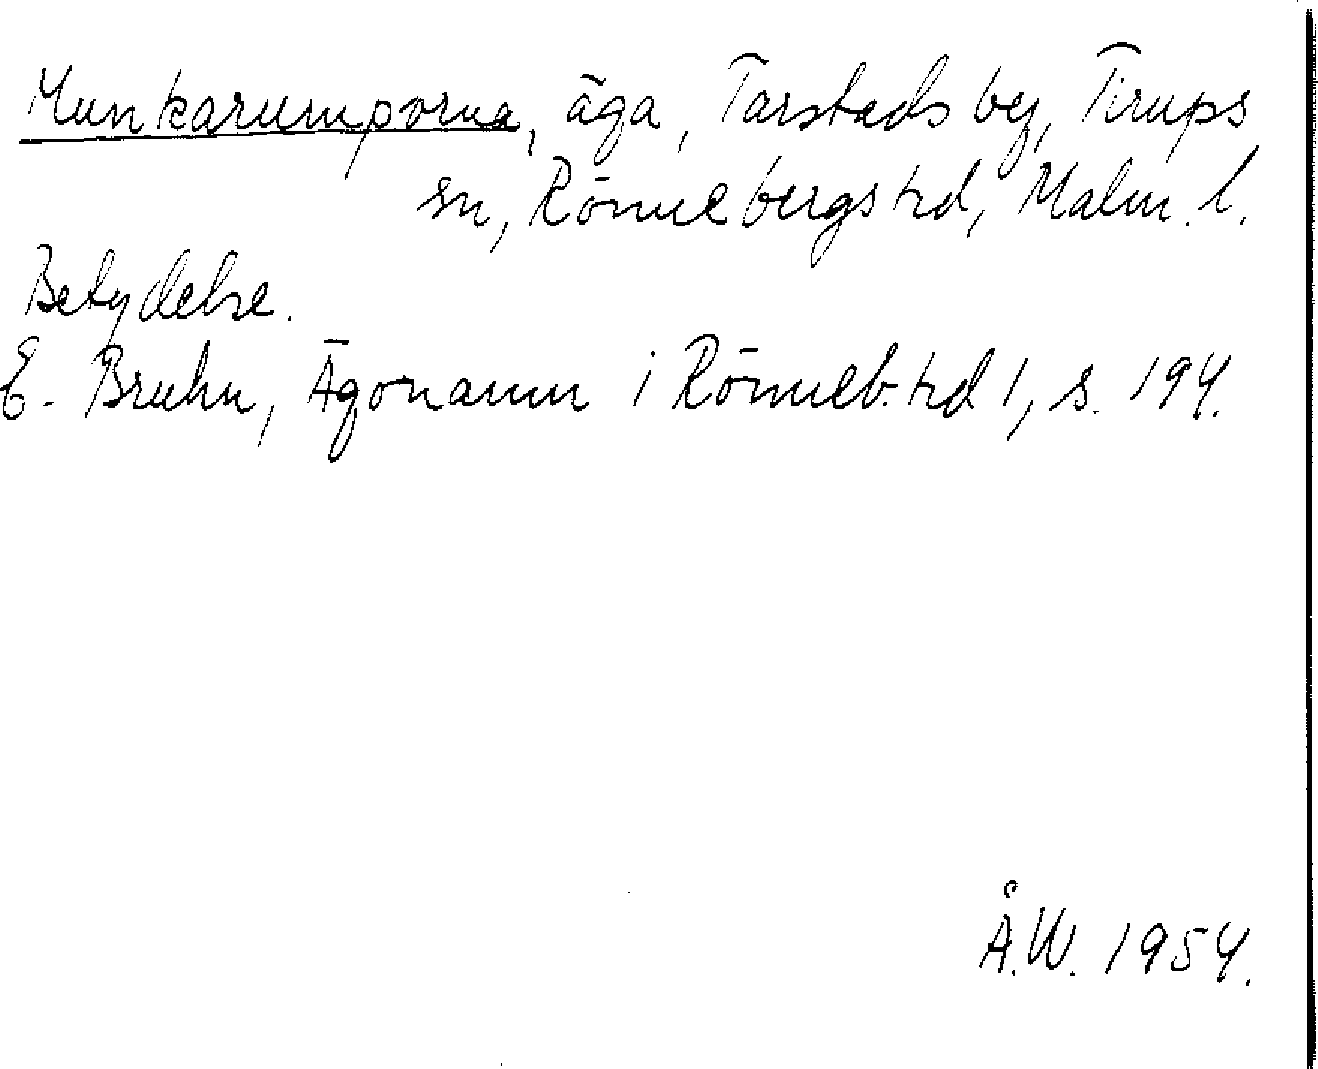 Munkarumporna, äga, Tarstads by, Tirups
sn, Rönnebergs hd, Malm. l.
Betydelse.
E. Bruhn, Ägonamn i Rönneb. hd 1, s. 194.
Å.W. 1954.